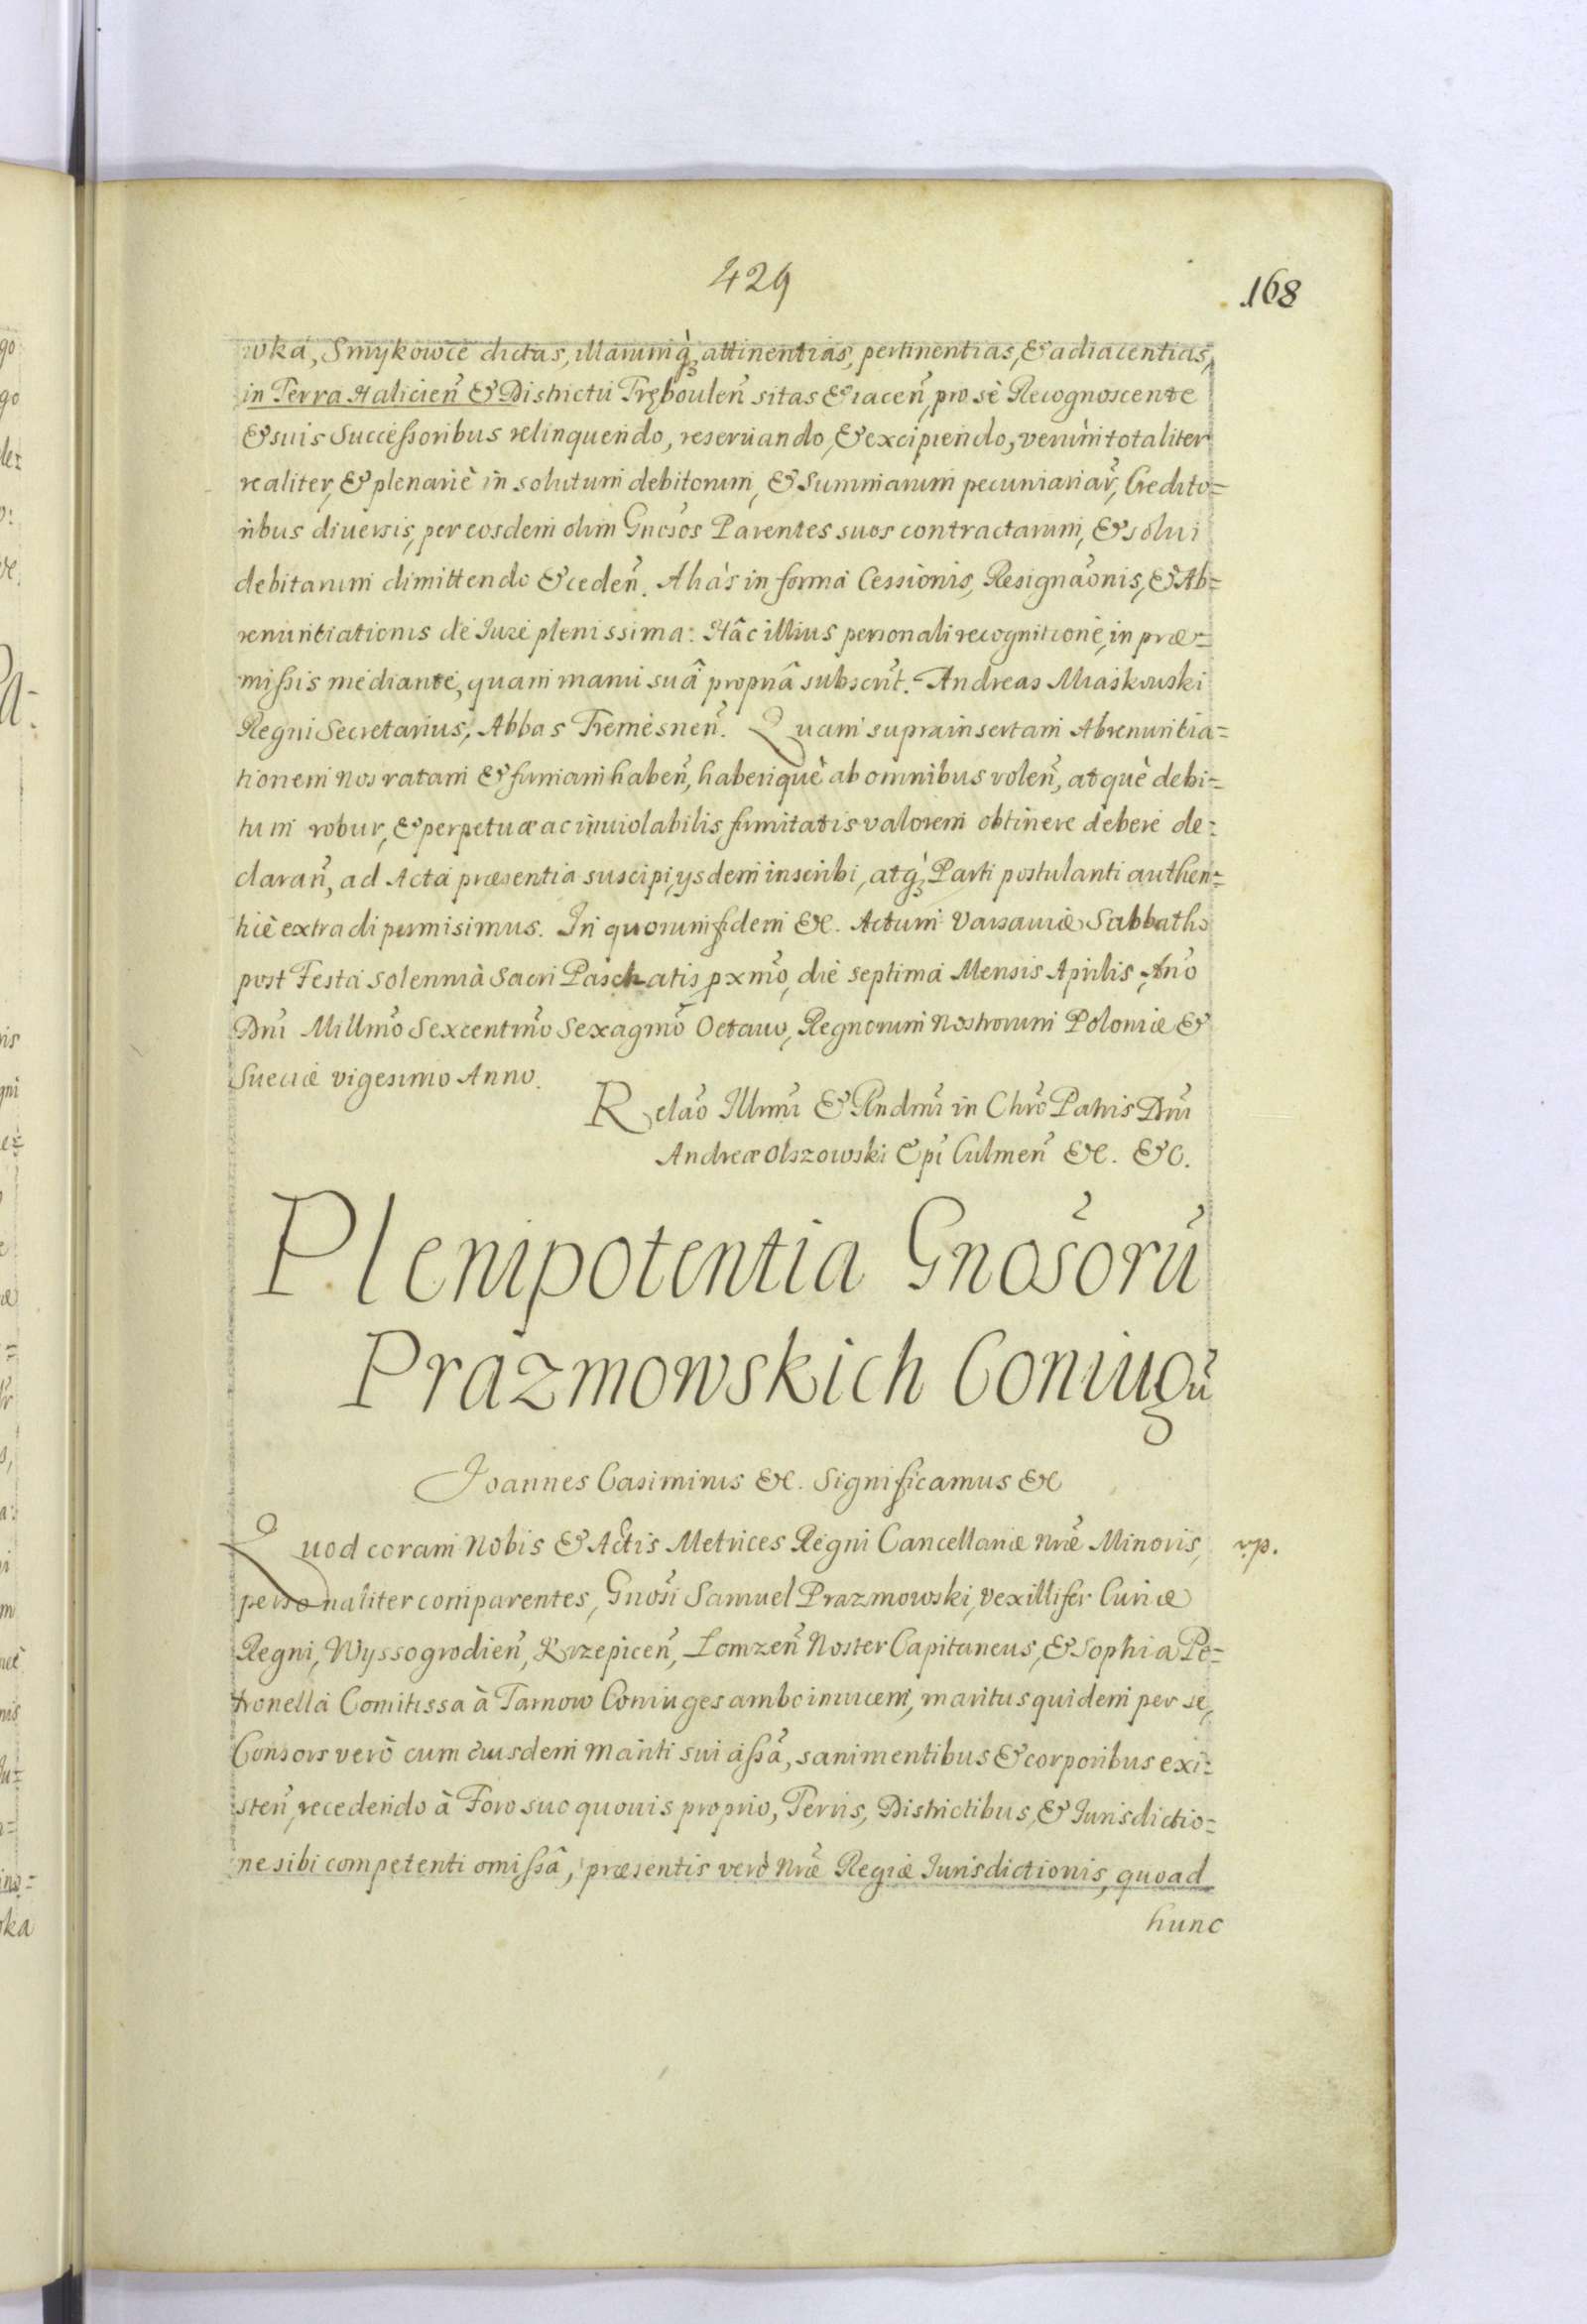 429
168
wka, Smykowce dictas, illarumq́ attinentias, pertinentias, & adiacentias,
in Terra Halicien̄ & Districtu Tręboulen̄ sitas & iacen̄, pro sè Recognoscente
& suis Successoribus relinquendo, reseruando, & excipiendo, verùm totaliter
realiter, & plenariè in solutum debitorum, & Summarum pecuniariar̄, Credito=
ribus diuersis, per eosdem olim Gnōsos Parentes suos contractarum, & solui
debitarum dimittendo & ceden̄. Aliàs in forma Cessionis, Resignaōnis, & Ab=
renuntiationis de Iure plenissima: Hâc illius personali recognitione, in præ=
missis mediante, quam manu suâ propriâ subscrīt. Andreas Miaskowski
Regni Secretarius, Abbas Tremesnen̄. Quam suprainsertam Abrenuntia=
tionem nos ratam & firmam haben̄, haberiquè ab omnibus volen̄, atquè debi=
tum robur, & perpetuæ ac inuiolabilis firmitatis valorem obtinere debere de=
claran̄, ad Acta præsentia suscipi, ysdem inscribi, atq́ Parti postulanti authen=
ticè extradi permisimus. In quorum fidem &c. Actum Varsauiæ Sabbatho
post Festa solennia Sacri Paschatis pxm̄o, die septima Mensis Aprilis, An̄o
Dn̄i Millm̄o Sexcentm̄o Sexagm̄o Octauo, Regnorum Nostrorum Poloniæ &
Sueciæ vigesimo Anno.
Relāo Illm̄i & Rn̄dm̄i in Chr̄o Patris Dn̄i
Andreæ Olszowski Ep̄i Culmen̄ &c. &c.
Plenipotentia Gnōsorū
Prazmowskich Coniugū
Joannes Casimirus &c. Significamus &c
Quod coram Nobis & Actis Metrices Regni Cancellariæ nr̄æ Minoris,
vp.
personaliter comparentes, Gnōsi Samuel Prazmowski, Vexillifer Curiæ
Regni, Wyssogrodien̄, Krzepicen̄, Lomzen̄ Noster Capitaneus, & Sophia Pe=
tronella Comitissa à Tarnow Coniuges ambo inuicem, maritus quidem per se,
Consors verò cum eiusdem mariti sui assā, sani mentibus & corporibus exi=
sten̄, recedendo à Foro suo quouis proprio, Terris, Districtibus, & Iurisdictio=
ne sibi competenti omissâ, præsentis verò nr̄æ Regiæ Iurisdictionis, quoad
hunc